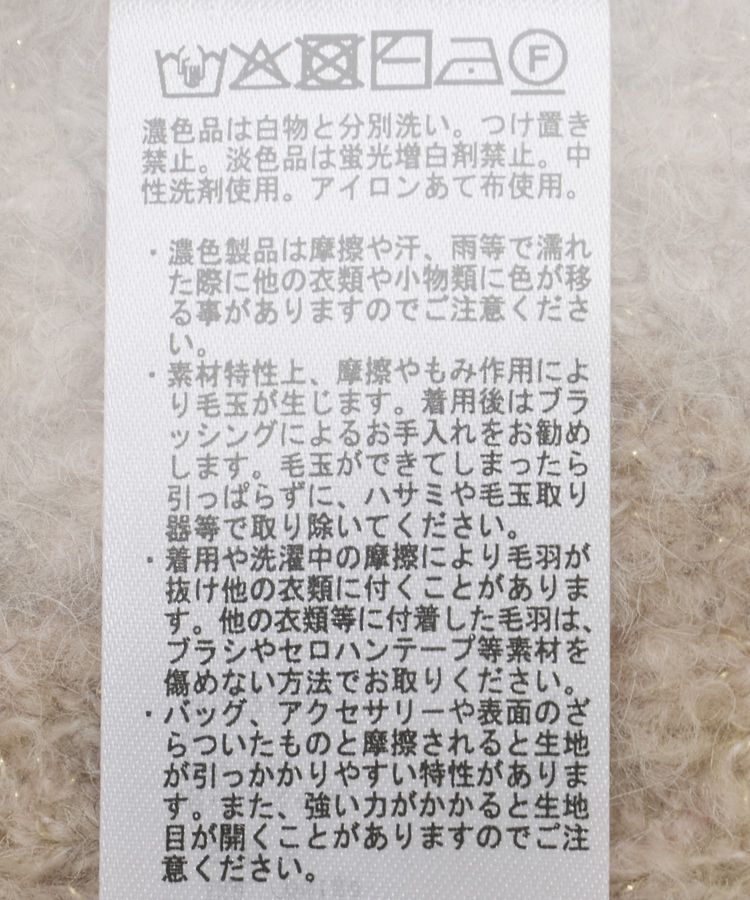 F
濃色品は白物と分別洗い。つけ置き
禁止。淡色品は蛍光増白剤禁止。中
性洗剤使用。アイロンあて布使用。
・濃色製品は摩擦や汗、雨等で濡れ
た際に他の衣類や小物類に色が移
る事がありますのでご注意くださ
い。
・素材特性上、摩擦やもみ作用によ
り毛玉が生じます。着用後はブラ
ッシングによるお手入れをお勧め
します。毛玉ができてしまったら
引っぱらずに、ハサミや毛玉取り
器等で取り除いてください。
・着用や洗濯中の摩擦により毛羽が
抜け他の衣類に付くことがありま
す。他の衣類等に付着した毛羽は、
ブラシやセロハンテープ等素材を
傷めない方法でお取りください。
・バッグ、アクセサリーや表面のざ
らついたものと摩擦されると生地
が引っかかりやすい特性がありま
す。また、強い力がかかると生地
目が開くことがありますのでご注
意ください。